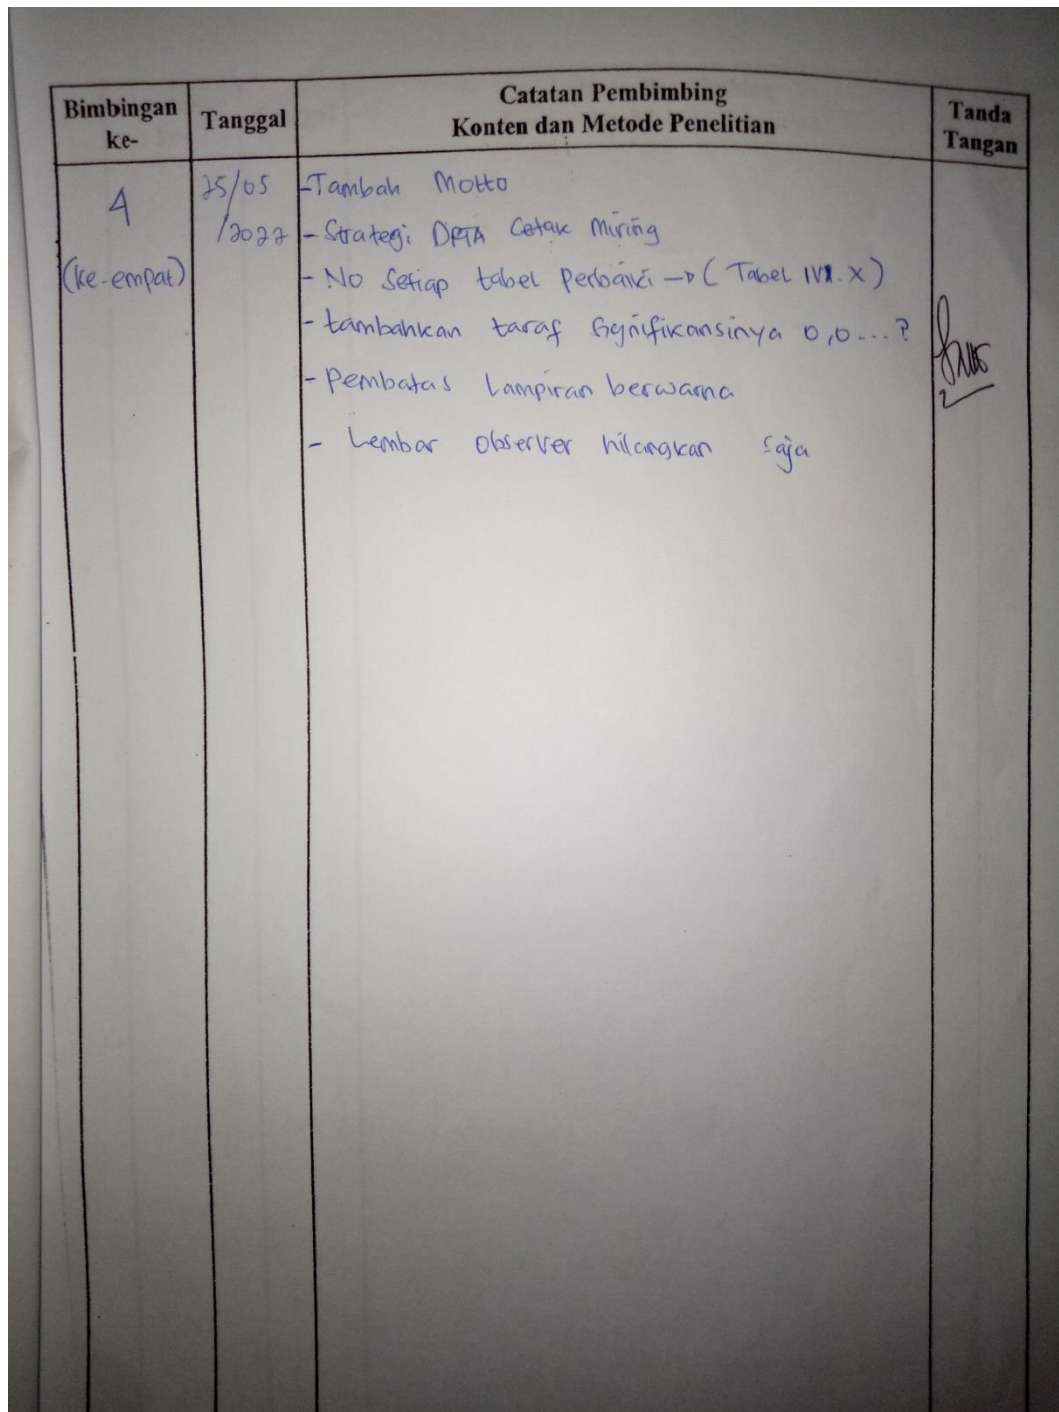 Bimbingan ke-
Tanggal
Catatan Pembimbing
Konten dan Metode Penelitian
Tanda Tangan
4
(ke-empat)
25/05
/2022
-Tambah Motto
- Strategi DRTA Cetak Miring
- No Setiap tabel Perbaiki → ( Tabel IV. X )
- tambahkan taraf Signifikansinya 0,0...?
- Pembatas Lampiran berwarna
- Lembar observer hilangkan saja